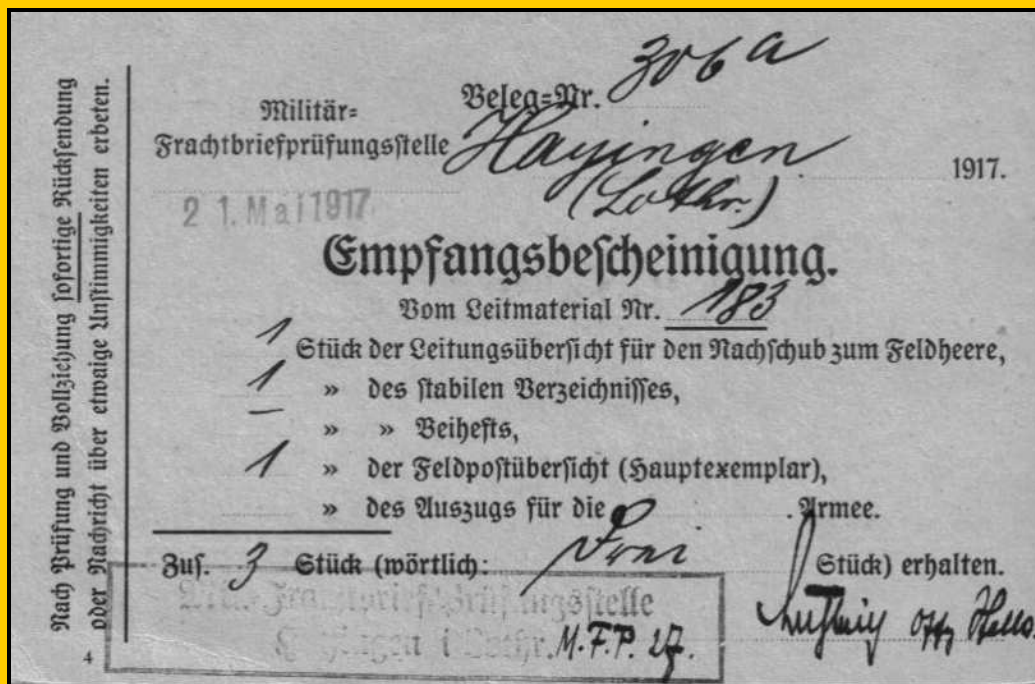 Nach Prüfung und Vollziehung sofortige Rücksendung
oder Nachricht über etwaige Unstimmigkeiten erbeten.
Beleg=Nr. 306a
Militär=
Frachtbriefprüfungsstelle Hayingen 1917.
(Lothr.)
21. Mai 1917
Empfangsbescheinigung.
Vom Leitmaterial Nr. 183
1 Stück der Leitungsübersicht für den Nachschub zum Feldheere,
1 » des stabilen Verzeichnisses,
— » » Beihefts,
1 » der Feldpostübersicht (Hauptexemplar),
» des Auszugs für die Armee.
Zus. 3 Stück (wörtlich: Drei Stück) erhalten.
Mil.-Frachtbrief-Prüfungsstelle
Hayingen i Lothr. M.F.P. 27.
4